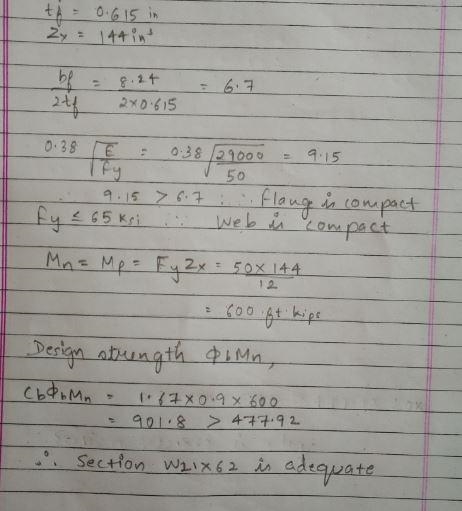 tf = 0.615 in
Zx = 144 in³
bf / 2tf = 8.24 / 2×0.615 = 6.7
0.38 √(E / Fy) = 0.38 √(29000 / 50) = 9.15
∴ 9.15 > 6.7 ∴ flange is compact
Fy ≤ 65 Ksi ∴ Web is compact
Mn = Mp = Fy Zx = 50×144 / 12
= 600 ft kips
Design strength ΦbMn,
CbΦbMn = 1.67×0.9×600
= 901.8 > 477.92
∴ Section W21×62 is adequate